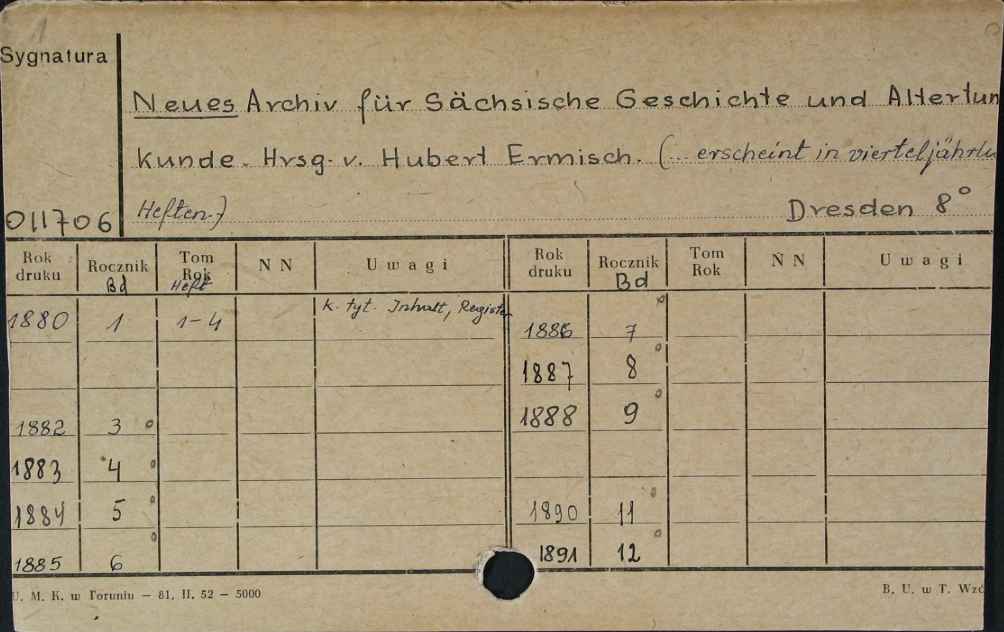 Sygnatura
Neues Archiv für Sächsische Geschichte und Altertum
kunde. Hrsg. v. Hubert Ermisch. (... erscheint in vierteljährli
Heften.) Dresden 8°
011706
Rok druku Rocznik Bd Tom Rok Heft N N Uwagi Rok druku Rocznik Bd Tom Rok N N Uwagi
1880 1 1-4 K. tyt. Inhalt, Register 1886 7°
1887 8°
1882 3° 1888 9°
1883 4°
1884 5° 1890 11°
1885 6° 1891 12°
U. M. K. w Toruniu — 81. II. 52 — 5000 B. U. w T. Wzó